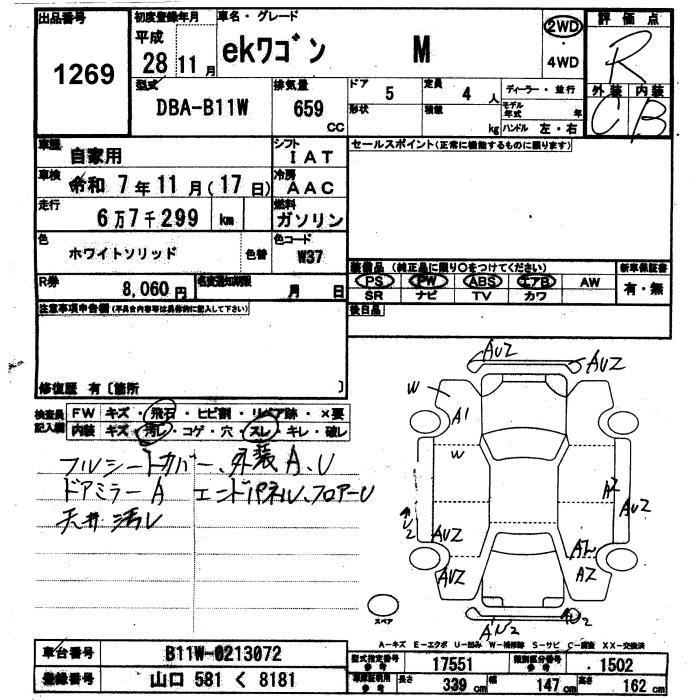 出品番号 1269
初度登録年月 平成 28 11月
車名・グレード ekワゴン M
2WD ・ 4WD
評価点 R
外装 C 内装 B
型式 DBA-B11W
排気量 659 CC
ドア 5 形状
定員 4 人 積載 kg
ディーラー・並行
モデル年式 年
ハンドル 左・右
車歴 自家用
シフト IAT
車検 令和 7年11月(17日)
冷房 AAC
走行 6万7千299 km
燃料 ガソリン
色 ホワイトソリッド 色替
色コード W37
R券 8,060円
名変通知期限 月 日
セールスポイント(正常に機能するものに限ります)
装備品 (純正品に限り○をつけてください)
新車保証書 有・無
PS PW ABS エアB AW
SR ナビ TV カワ
後日品
注意事項申告欄(不具合内容等は具体的に記入して下さい)
修復歴 有〔箇所 〕
検査員記入欄
FW キズ・飛石・ヒビ割・リペア跡・×要
内装 キズ・汚レ・コゲ・穴・スレ・キレ・破レ
フルシートカバー、外装A、U
ドアミラーA エンドパネルU、フロアーU
天井汚レ
AUZ AUZ
W A1
W
A2
U2
AUZ
AUZ AZ
スペア
A-キズ E-エクボ U-凹み W-補修跡 S-サビ C-腐食 XX-交換済
車台番号 B11W-0213072
登録番号 山口 581 く 8181
型式指定番号 参考 17551
類別区分番号 参考 1502
車庫証明用 参考 長さ 339 cm 幅 147 cm 高さ 162 cm